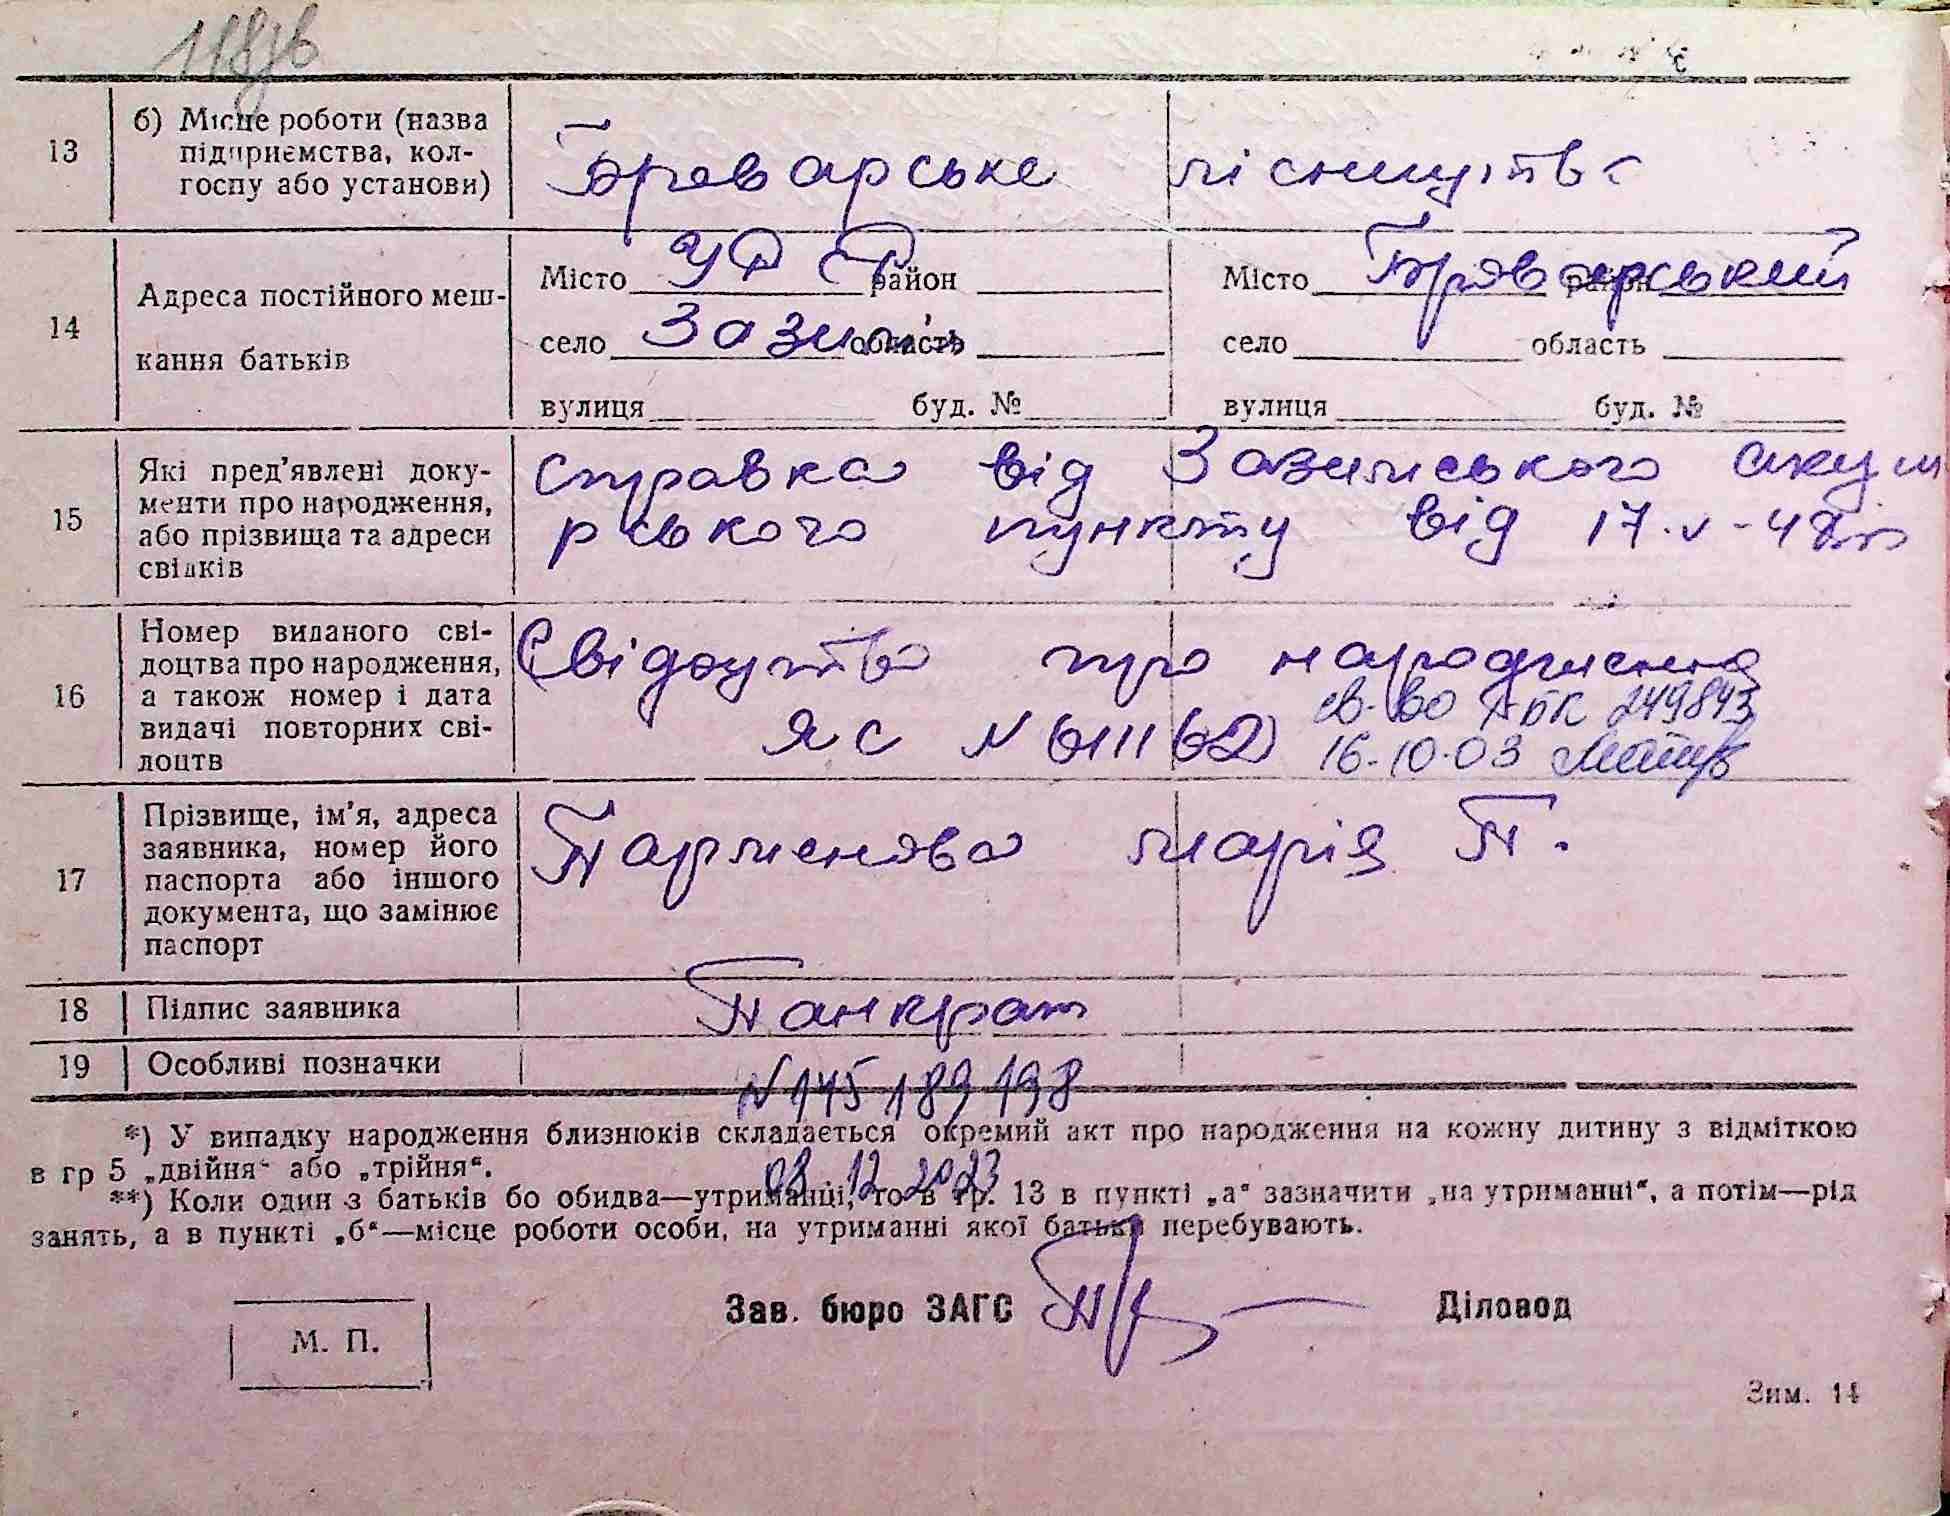 118зв
13 б) Місце роботи (назва підприємства, колгоспу або установи) Броварське лісництво
14 Адреса постійного мешкання батьків
Місто УРСР район Місто Броварський район
село Зазимя область село область
вулиця буд. № вулиця буд. №
15 Які пред'явлені документи про народження, або прізвища та адреси свідків
справка від Зазимського акуш
рського пункту від 17.V-48р
16 Номер виданого свідоцтва про народження, а також номер і дата видачі повторних свідоцтв
Свідоцтво про народження
ЯС N 611162
св-во А БК 249843
16-10-03
17 Прізвище, ім'я, адреса заявника, номер його паспорта або іншого документа, що замінює паспорт
Парменова Марія П.
18 Підпис заявника Панкрат
19 Особливі позначки
N 145 189 198
*) У випадку народження близнюків складається окремий акт про народження на кожну дитину з відміткою
в гр 5 „двійня“ або „трійня“.
08.12.2023
**) Коли один з батьків бо обидва—утриманці, то в гр. 13 в пункті „а“ зазначити „на утриманні“, а потім—рід
занять, а в пункті „б“—місце роботи особи, на утриманні якої батьки перебувають.
Зав. бюро ЗАГС Діловод
М. П.
Зим. 14